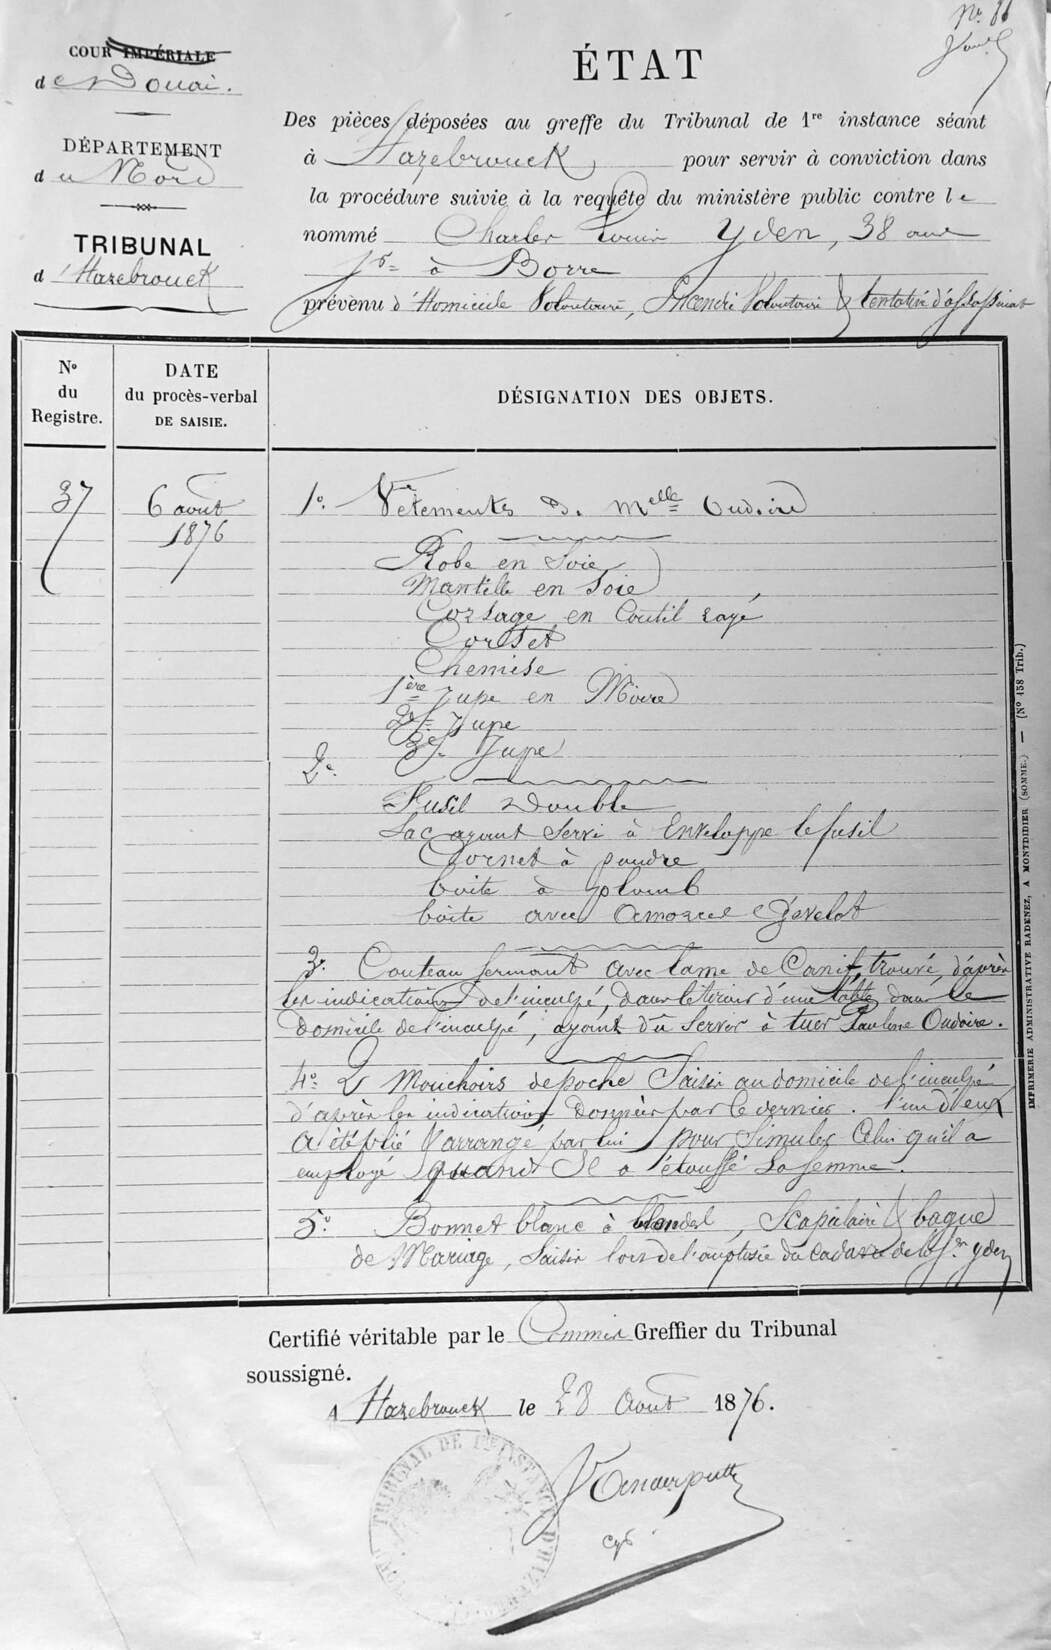 Nr. 81
COUR IMPÉRIALE
de Douai.
DÉPARTEMENT
du Nord
TRIBUNAL
d'Hazebrouck
ÉTAT
Des pièces déposées au greffe du Tribunal de 1re instance séant
à Hazebrouck, pour servir à conviction dans
la procédure suivie à la requête du ministère public contre le
nommé Charles Louis Yden, 38 ans
à Borre
prévenu d'Homicide Volontaire, Incendie Volontaire & tentative d'assassinat
No du Registre.
DATE du procès-verbal DE SAISIE.
DÉSIGNATION DES OBJETS.
37
6 août
1876
1o. Vêtements de Melle Oudoire
Robe en Soie
Mantille en Soie
Corsage en Coutil rayé
Corset
Chemise
1ère Jupe en Moire
2e Jupe
3e Jupe
2o.
Fusil Double
Sac ayant Servi à Enveloppe le fusil
Cornet à poudre
boite à plomb
boite avec Amorces Gévelot
3o. Couteau fermant avec lame de Canif, trouvé, d'après
les indications de l'inculpé, dans le tiroir d'une table dans le
domicile de l'inculpé, ayant dû Servir à tuer Pauline Oudoire.
4o. 2 Mouchoirs de poche Saisis au domicile de l'inculpé
d'après les indications données par ce dernier. l'un d'eux
a été plié & arrangé par lui pour Simuler Celui qu'il a
employé quand Il a étouffé Sa femme.
5o. Bonnet blanc à, Scapulaire & bague
de Mariage, Saisis lors de l'autopsie du Cadavre de la fe Yden
Certifié véritable par le Commis Greffier du Tribunal
soussigné.
A Hazebrouck le 28 Août 1876.
TRIBUNAL DE 1RE INSTANCE D'HAZEB
IMPRIMERIE ADMINISTRATIVE RADENEZ, A MONTDIDIER (SOMME.) — (No 158 Trib.)